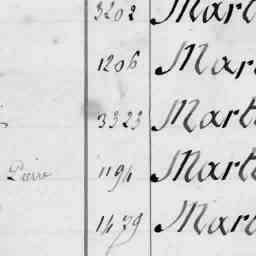 3202 Mart
1206 Mar
3323 Mart
Pierre 1194 Mart
1479 Mart